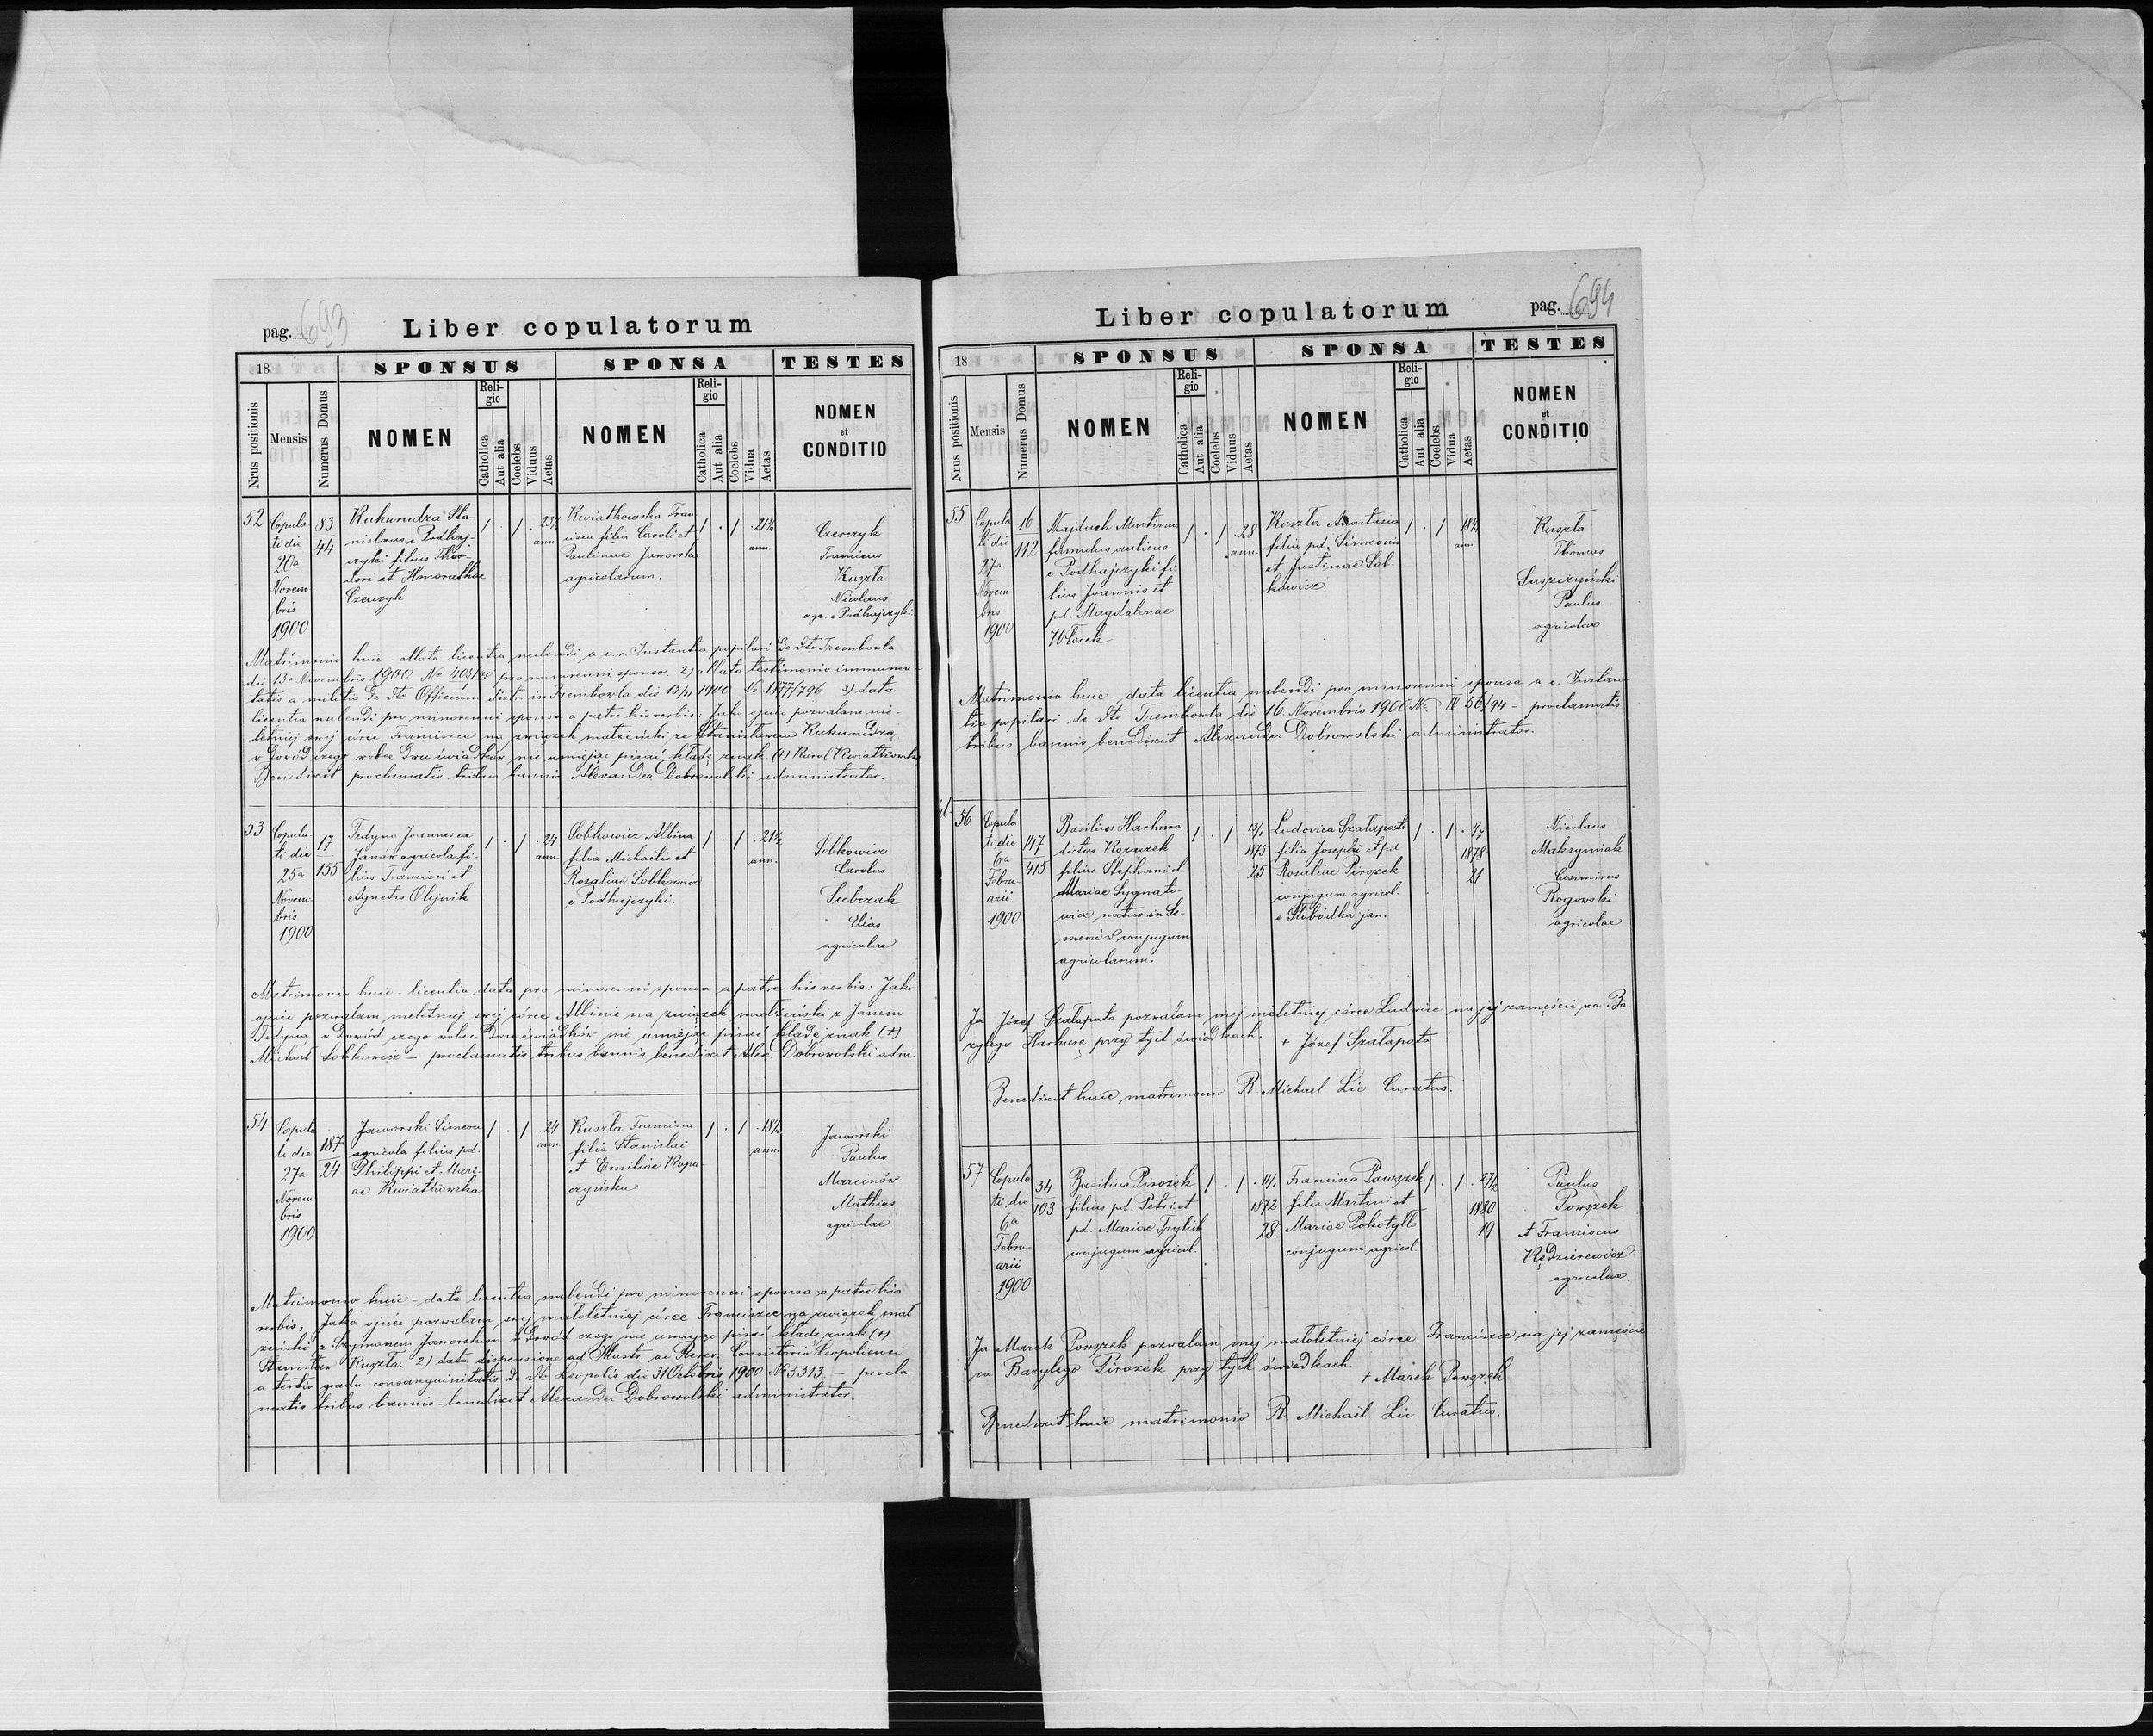 pag. 693
Liber copulatorum
18
SPONSUS
SPONSA
TESTES
Nrus positionis
Mensis
Numerus Domus
NOMEN
Religio
Catholica
Aut alia
Coelebs
Viduus
Aetas
NOMEN
Religio
Catholica
Aut alia
Coelebs
Vidua
Aetas
NOMEN
et
CONDITIO
52
Copula
ti die
20a
Novem
bris
1900
83
44
Kukurudza Sta-
nislaus e Podhaj-
czyki filius Theo-
dori et Honorathae
Czerczyk
1 . 1 . 23½
ann.
Kwiatkowska Fran
cisca filia Caroli et
Paulinae Jaworska
agricolarum.
1 . 1 . 21¾
ann.
Czerczyk
Franciscus
Kuszla
Nicolaus
agr. e Podhajczyki
Matrimonio huic - allata licentia nubendi a c. r. Instantia pupilari de dto Trembowla
die 13a Novembris 1900 No pro minorenni sponso. 2) allato testimonio immuni-
tatis a militia de dto Officium distr. in Trembowla die 13/11 1900 No 1877/796 3) data
licentia nubendi pro minorenni sponsa a patre his verbis: Jako ojciec pozwalam nie-
letniej swej córce Franciszce na związek małżeński ze Stanisławem Kukurudzą
w dowód czego wobec dwu świadków nie umiejąc pisać kładę znak (+) Karol Kwiatkowski
Benedixit proclamatis tribus bannis Alexander Dobrowolski administrator.
53
Copula
ti die
25a
Novem-
bris
1900
17
155
Tedyna Joannes ex
Janów agricola fi-
lius Francisci et
Agnetis Olejnik
1 . 1 . 24
ann.
Sobkowicz Albina
filia Michaelis et
Rosaliae Sobkowicz
e Podhajczyki.
1 . 1 . 21½
ann.
Sobkowicz
Carolus
Subczak
Elias
agricolae
Matrimonio huic - licentia data pro minorenni sponsa a patre his verbis: Jako
ojciec pozwalam nieletniej swej córce Albinie na związek małżeński z Janem
Tedyna w dowód czego wobec dwu świadków nie umiejąc pisać kładę znak (+)
Michał Sobkowicz - proclamatis tribus bannis benedixit Alex. Dobrowolski adm.
54
Copula
ti die
27a
Novem
bris
1900
187
24
Jaworski Simeon
agricola filius pd.
Philippi et Mari-
ae Kwiatkowska
1 . 1 . 24
ann.
Kuszla Francisca
filia Stanislai
et Emiliae Kopa-
czyńska
1 . 1 . 18½
ann.
Jaworski
Paulus
Marcinów
Mathias
agricolae
Matrimonio huic - data licentia nubendi pro minorenni sponsa a patre his
verbis: Jako ojciec pozwalam swej małoletniej córce Franciszce na związek mał
żeński z Szymonem Jaworskim w dowód czego nie umiejąc pisać kładę znak (+)
Stanisław Kuszla. 2) data dispensatione ad Illustr. ac Rever. Consistorio Leopoliensi
a tertio gradu consanguinitatis d. dto Leopolis die 31 Octobris 1900 No 5313. - procla
matis tribus bannis - benedixit Alexander Dobrowolski administrator.
Liber copulatorum
pag. 694
18
SPONSUS
SPONSA
TESTES
Nrus positionis
Mensis
Numerus Domus
NOMEN
Religio
Catholica
Aut alia
Coelebs
Viduus
Aetas
NOMEN
Religio
Catholica
Aut alia
Coelebs
Vidua
Aetas
NOMEN
et
CONDITIO
55
Copula
ti die
27a
Novem-
bris
1900
16
112
Najduch Martinus
famulus aulicus
e Podhajczyki fi-
lius Joannis et
pd. Magdalenae
Włoch
1 . 1 . 28
ann.
Kuszla Anastasia
filia pd. Simeonis
et Justinae Sob-
kowicz
1 . 1 18½
ann.
Kuszla
Thomas
Suszczyński
Paulus
agricolae
Matrimonio huic - data licentia nubendi pro minorenni sponsa a c. r. Instan
tia pupilari de dto Trembowla die 16 Novembris 1900 No IV 56/94 - proclamatis
tribus bannis benedixit Alexander Dobrowolski administrator.
56
Copula
ti die
6a
Febru-
arii
1900
147
415
Basilius Harhura
dictus Kozaczek
filius Stephani et
Mariae Sygnato-
wicz natus in Se-
meniw conjugum
agricolarum.
1 . 1 . 13/1
1875
25
Ludovica Szałapata
filia Josephi et pd.
Rosaliae Pirożek
conjugum agricol.
e Słobódka jan.
1 . 1 . 1/7
1878
21
Nicolaus
Maksymiak
Casimirus
Rogowski
agricolae
Ja Józef Szałapata pozwalam mej nieletniej córce Ludwice na jej zamęście za Ba
zylego Harhurę przy tych świadkach. + Józef Szałapata
Benedixit huic matrimonio R. Michaël Lic Curatus.
57
Copula
ti die
6a
Febru-
arii
1900
34
103
Basilius Pirożek
filius pd. Petri et
pd. Mariae Trylich
conjugum agricol.
1 . 1 . 11/1
1872
28.
Francisca Powszek
filia Martini et
Mariae Pokotyłło
conjugum agricol.
1 . 1 . 27/2
1880
19
Paulus
Powszek
et Franciscus
Kędzierewicz
agricolae.
Ja Marek Powszek pozwalam mej małoletniej córce Franciszce na jej zamęście
za Bazylego Pirożek przy tych świadkach. + Marek Powszek
Benedixit huic matrimonio R. Michaël Lic Curatus.